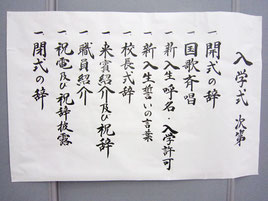 入学式 次第
一 開式の辞
一 国歌斉唱
一 新入生呼名・入学許可
一 新入生誓いの言葉
一 校長式辞
一 来賓紹介及び祝辞
一 職員紹介
一 祝電及び祝辞披露
一 閉式の辞